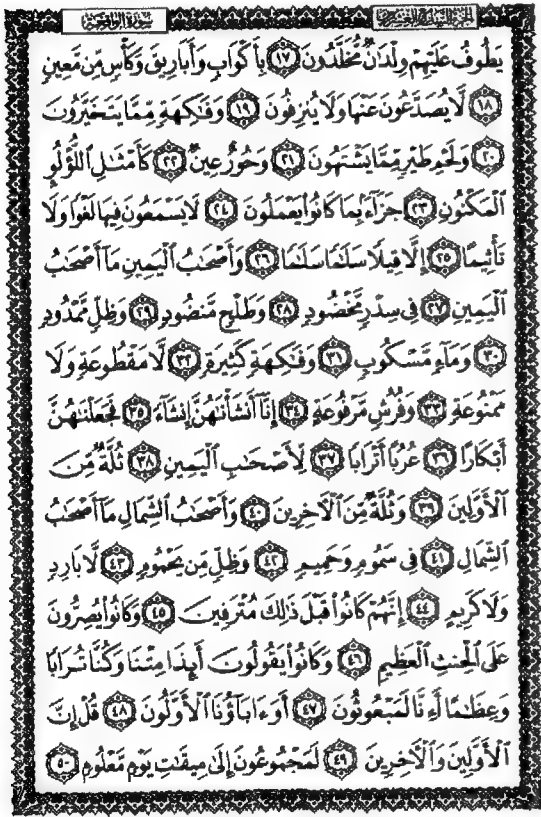 سورة الواقعة
يَطُوفُ عَلَيْهِمْ وِلْدَانٌ مُّخَلَّدُونَ ١٧ بِأَكْوَابٍ وَأَبَارِيقَ وَكَأْسٍ مِّن مَّعِينٍ
١٨ لَّا يُصَدَّعُونَ عَنْهَا وَلَا يُنزِفُونَ ١٩ وَفَٰكِهَةٍ مِّمَّا يَتَخَيَّرُونَ
٢٠ وَلَحْمِ طَيْرٍ مِّمَّا يَشْتَهُونَ ٢١ وَحُورٌ عِينٌ ٢٢ كَأَمْثَٰلِ ٱللُّؤْلُوِٕ
ٱلْمَكْنُونِ ٢٣ جَزَآءًۢ بِمَا كَانُوا۟ يَعْمَلُونَ ٢٤ لَا يَسْمَعُونَ فِيهَا لَغْوًا وَلَا
تَأْثِيمًا ٢٥ إِلَّا قِيلًا سَلَٰمًا سَلَٰمًا ٢٦ وَأَصْحَٰبُ ٱلْيَمِينِ مَآ أَصْحَٰبُ
ٱلْيَمِينِ ٢٧ فِى سِدْرٍ مَّخْضُودٍ ٢٨ وَطَلْحٍ مَّنضُودٍ ٢٩ وَظِلٍّ مَّمْدُودٍ
٣٠ وَمَآءٍ مَّسْكُوبٍ ٣١ وَفَٰكِهَةٍ كَثِيرَةٍ ٣٢ لَّا مَقْطُوعَةٍ وَلَا
مَمْنُوعَةٍ ٣٣ وَفُرُشٍ مَّرْفُوعَةٍ ٣٤ إِنَّآ أَنشَأْنَٰهُنَّ إِنشَآءً ٣٥ فَجَعَلْنَٰهُنَّ
أَبْكَارًا ٣٦ عُرُبًا أَتْرَابًا ٣٧ لِّأَصْحَٰبِ ٱلْيَمِينِ ٣٨ ثُلَّةٌ مِّنَ
ٱلْأَوَّلِينَ ٣٩ وَثُلَّةٌ مِّنَ ٱلْءَاخِرِينَ ٤٠ وَأَصْحَٰبُ ٱلشِّمَالِ مَآ أَصْحَٰبُ
ٱلشِّمَالِ ٤١ فِى سَمُومٍ وَحَمِيمٍ ٤٢ وَظِلٍّ مِّن يَحْمُومٍ ٤٣ لَّا بَارِدٍ
وَلَا كَرِيمٍ ٤٤ إِنَّهُمْ كَانُوا۟ قَبْلَ ذَٰلِكَ مُتْرَفِينَ ٤٥ وَكَانُوا۟ يُصِرُّونَ
عَلَى ٱلْحِنثِ ٱلْعَظِيمِ ٤٦ وَكَانُوا۟ يَقُولُونَ أَئِذَا مِتْنَا وَكُنَّا تُرَابًا
وَعِظَٰمًا أَءِنَّا لَمَبْعُوثُونَ ٤٧ أَوَءَابَآؤُنَا ٱلْأَوَّلُونَ ٤٨ قُلْ إِنَّ
ٱلْأَوَّلِينَ وَٱلْءَاخِرِينَ ٤٩ لَمَجْمُوعُونَ إِلَىٰ مِيقَٰتِ يَوْمٍ مَّعْلُومٍ ٥٠